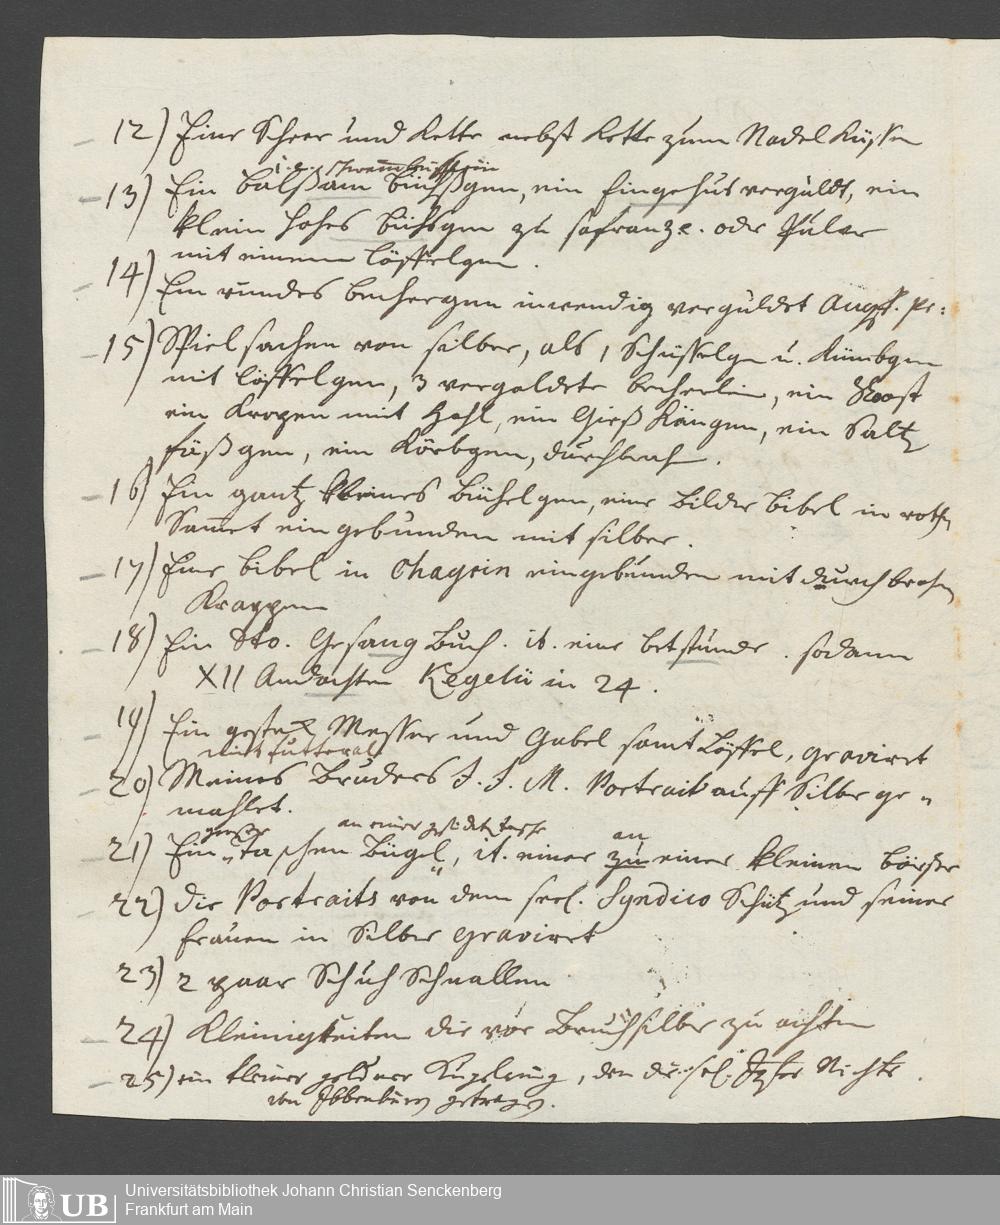 12) Eine Scheer und Kette nebst Kette zum Nadel Küssen
i. e. Schwammbüchslein
13) Ein Balsam Büchsgen, ein Fingerhut verguldt, ein
klein hohes Büchsgen zu safran z. oder Pulver
mit einem Löffelgen.
14) Ein rundes bechergen inwendig verguldet Augsp. Pr:
15) Spielsachen von silber, als 1 Schüsselgen u. Kümbgen
mit löffelgen, 3 vergoldete becherlein, ein Roost
ein Kropen mit Hahl, ein Gieß Käñgen, ein Saltz
fäßgen, ein Körbgen, durchbrach.
16) Ein gantz kleines Büchelgen, eine Bilder Bibel in roth
Sam̅et eingebunden mit silber.
17) Eine bibel in Chagrin eingebunden mit durchbrochn
Krappen
18) Ein 8to. Gesang Buch. it. eine betstunde. sodann
XII Andachten Kegelii in 24.
19) Ein Messer und Gabel samt Löffel, gravirt
mit futteral
20) Meines Bruders J. J. M. Portrait auff Silber ge-
mahlet.
große an einer tasche an
21) Ein Taschen Bügel, it. einer zu einer kleinen börse
22) die Portraits von dem seel. Syndico Schütz und seiner
frauen in Silber gravirt
23) 2 paar Schuh Schnallen
24) Kleinigkeiten die vor Bruchsilber zu achten
25) ein kleiner goldner Ring, den die sel. Nichte
von getragen.
Universitätsbibliothek Johann Christian Senckenberg
Frankfurt am Main
UB